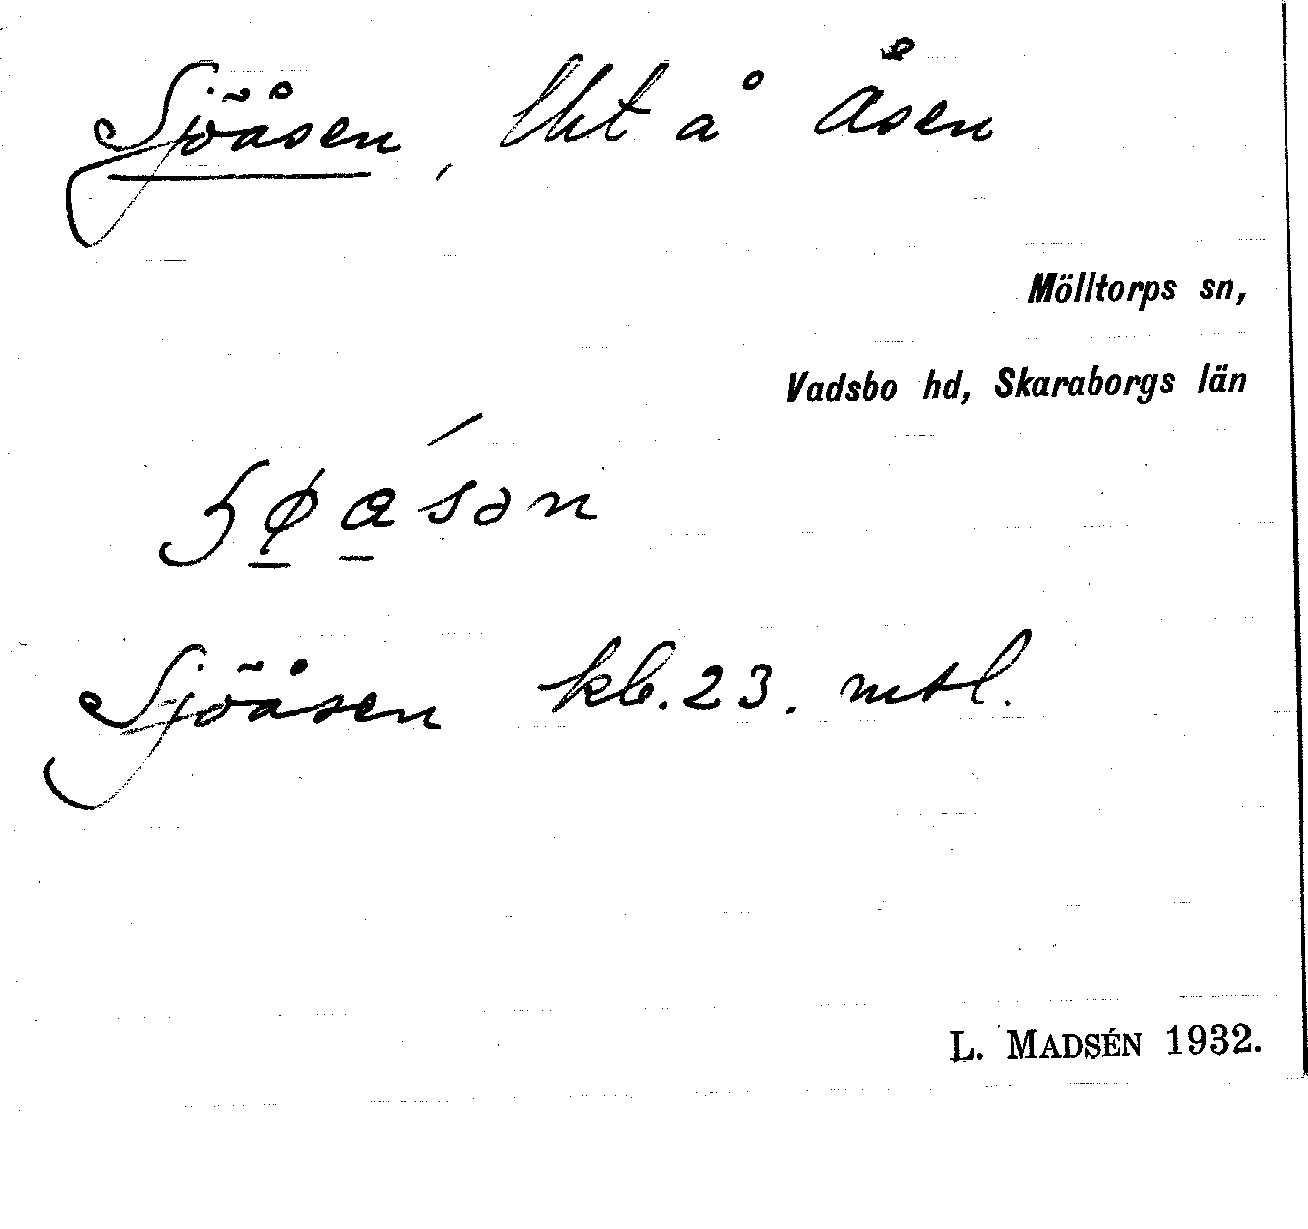 Sjöåsen, lht å Åsen
Mölltorps sn,
Vadsbo hd, Skaraborgs län
Sjöåsen kb. 23. mtl.
L. MADSÉN 1932.